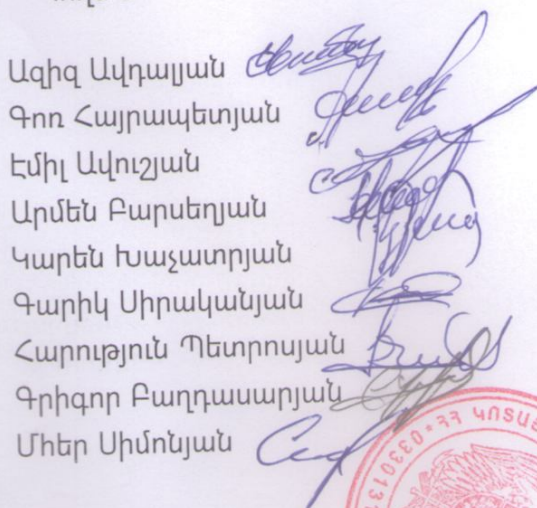 Ազիզ Ավդալյան
Գոռ Հայրապետյան
Էմիլ Ավուշյան
Արմեն Բարսեղյան
Կարեն Խաչատրյան
Գարիկ Սիրականյան
Հարություն Պետրոսյան
Գրիգոր Բաղդասարյան
Մհեր Սիմոնյան
ՀՀ ԿՈՏԱ